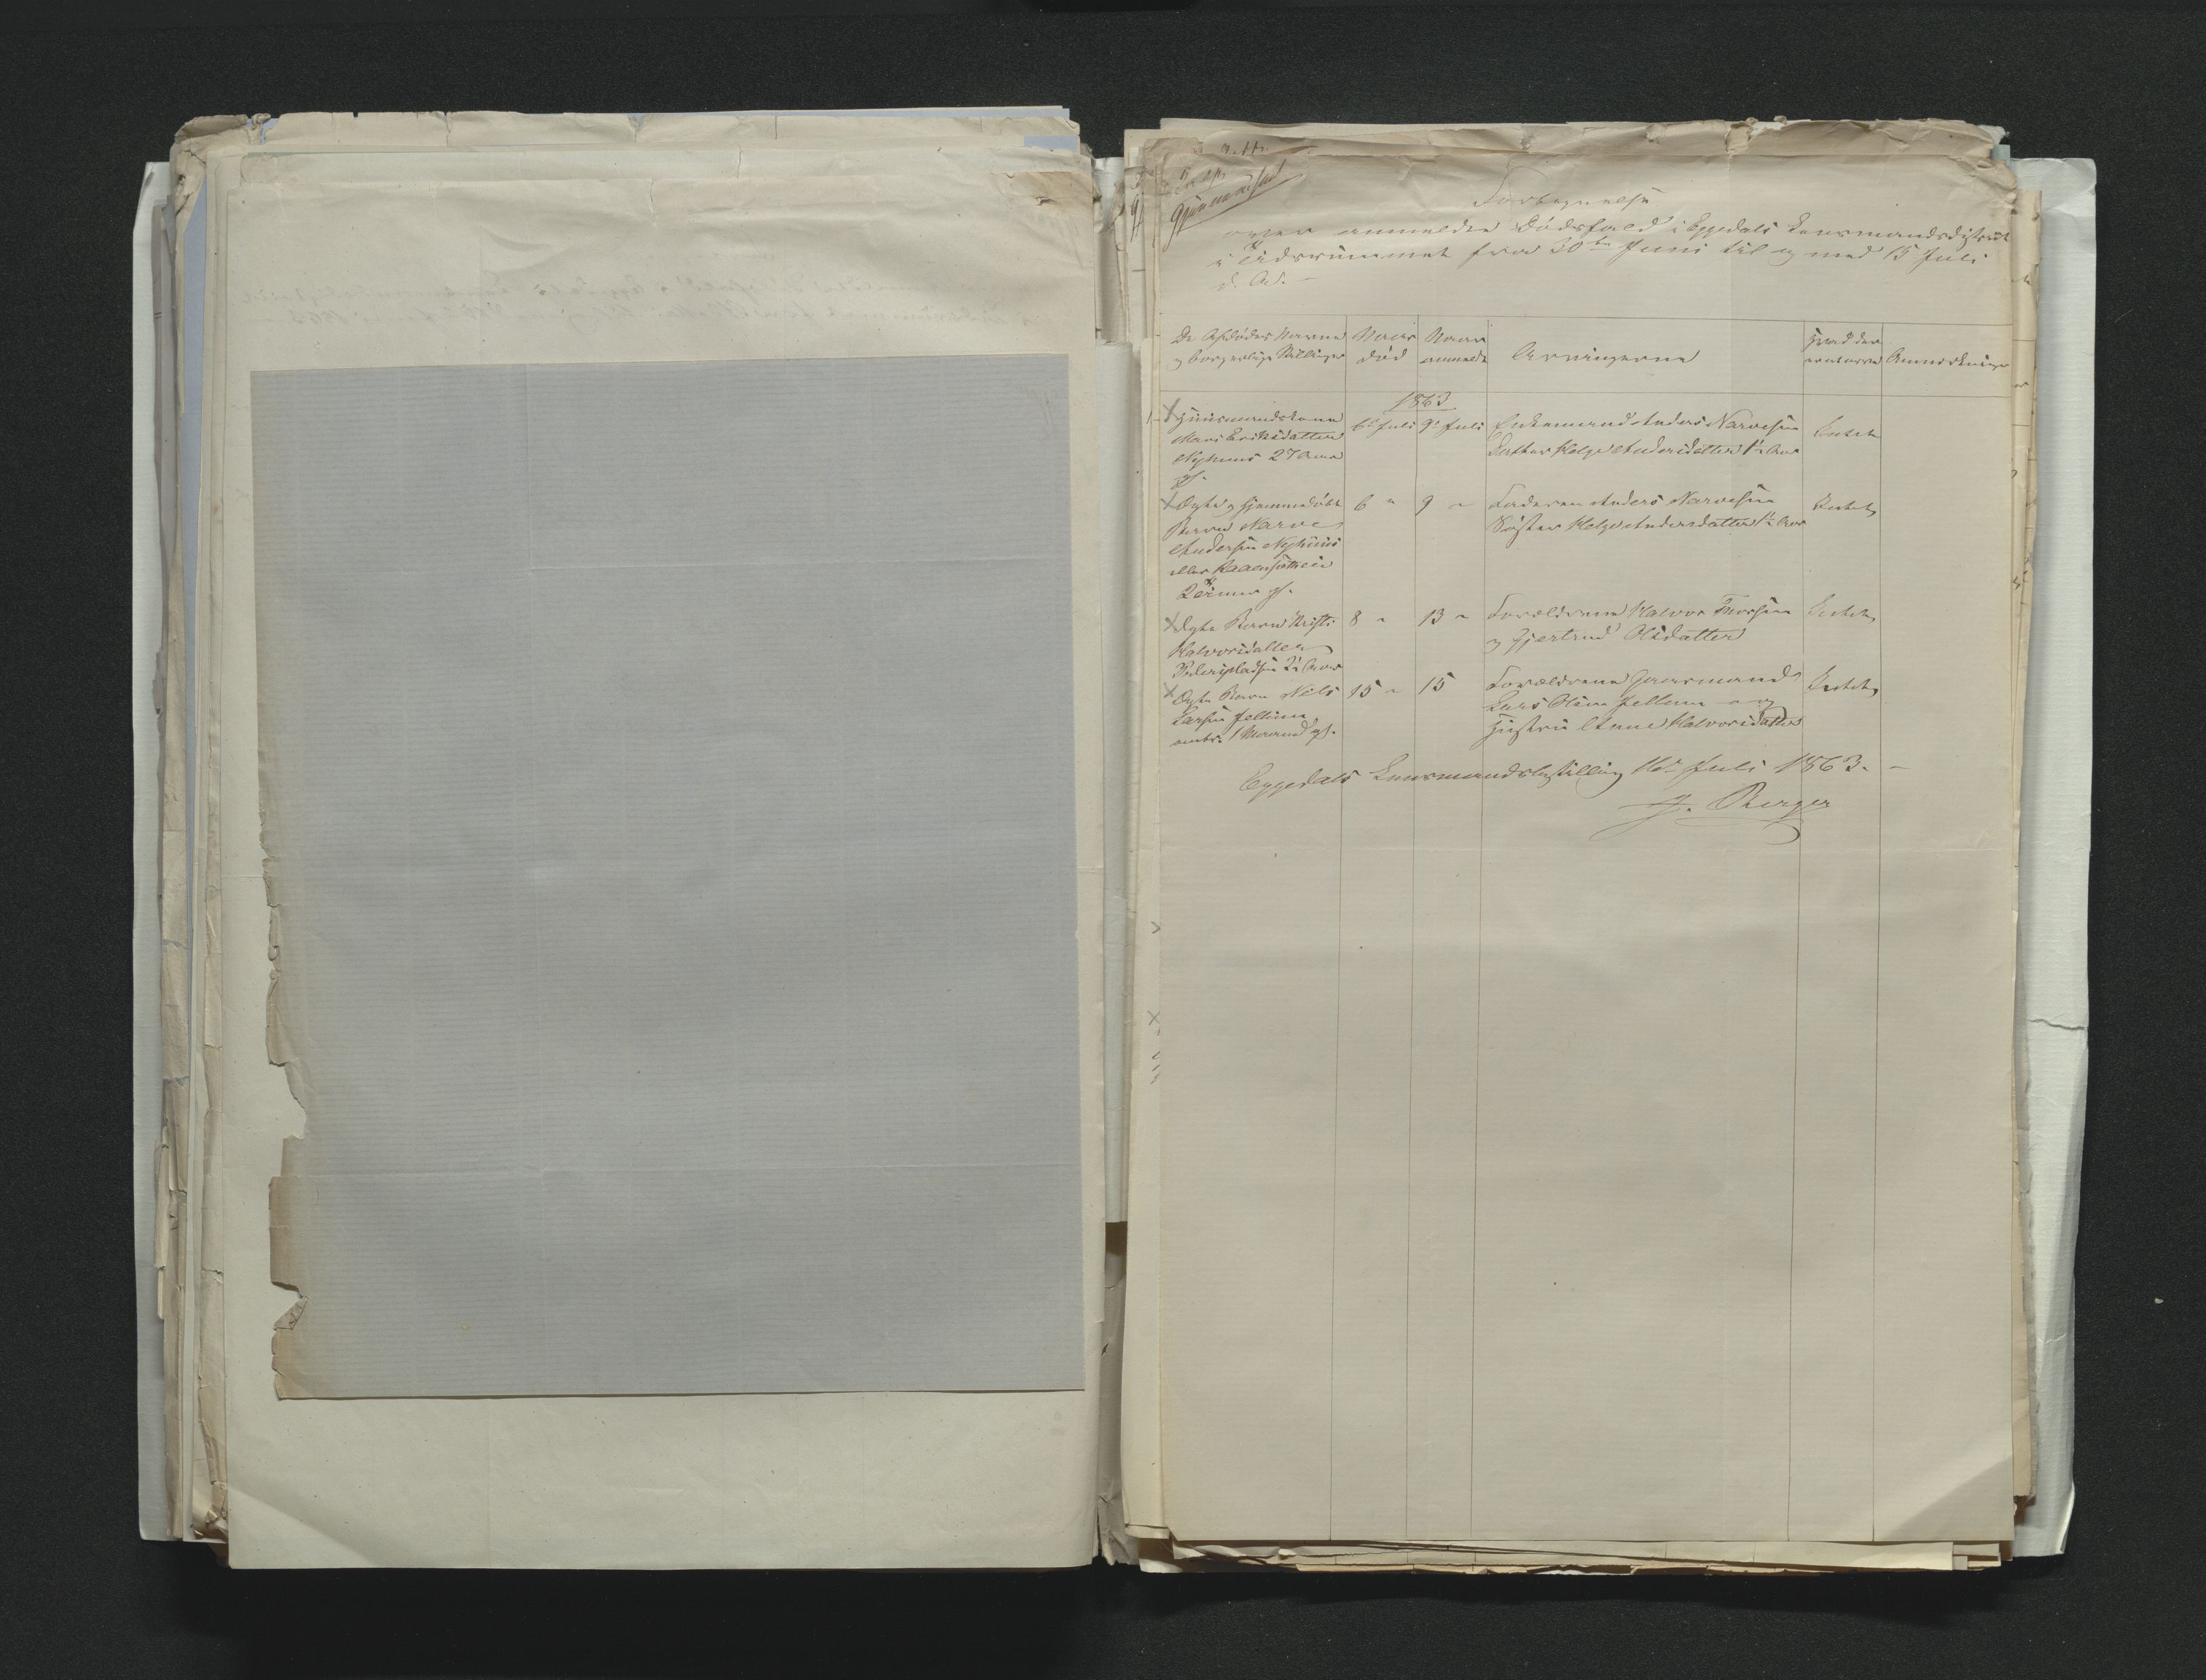 Fortegnelse
over anmeldte Dødsfald i Eggedals Lensmandsdistrikt
i Tidsrummet fra 30te Juni til og med 15 Juli
d. A. –
De Afdødes Navne
og borgerlige Stillinger
Naar
død
Naar
anmeldt
Arvingerne
Hvad der
er
Anmærkninger
1863
Huusmandskone
Mari Eriksdatter
Nyhuus 27 Aar
gl.
6te Juli
9de Juli
Enkemand Anders Narvesen
Datter Helge Andersdatter 1½ Aar
Intet
Ægte hjemmedøbt
Barn Narve
Andersen Nyhuus
eller
2 Timer gl.
6 "
9 "
Faderen Anders Narvesen
Søster Helge Andersdatter 1½ Aar
Intet
Ægte Barn Kristi
Halvorsdatter
2½ Aar
8 "
13 "
Forældrene Halvor Thorsen
og Gjertrud Olsdatter
Intet
Ægte Barn Nils
Larsen Jellum
omtr. 1 Maaned gl.
15 "
15
Forældrene Gaardmand
Lars Olsen Jellum og
Hustru Anne Halvorsdatter
Intet
Eggedals Lensmandsbestilling 16de Juli 1863. –
J. Berger